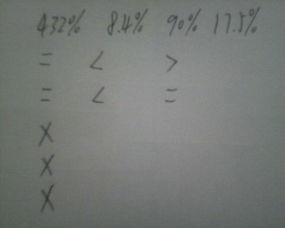 432% 8.4% 90% 17.5%
= < >
= < =
X
X
X